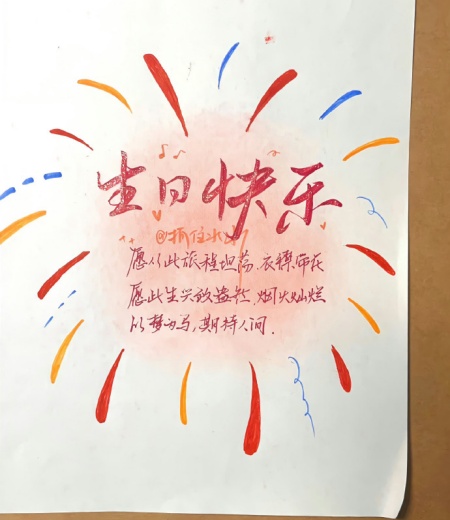 生日快乐
@抓住水
愿从此旅程坦荡,衣襟带花
愿此生兴致盎然,烟火灿烂
以梦为马,期待人间.